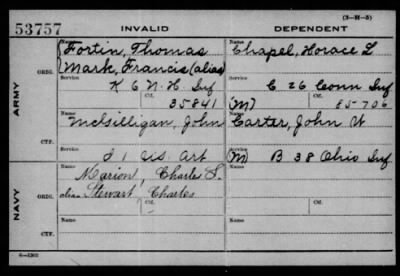 (3-H-5)
53757 INVALID DEPENDENT
ARMY
NAVY
ORIG.
CTF.
ORIG.
CTF.
Name Name
Fortin, Thomas Chapel, Horace L
Mark, Francis (alias)
Service Service
K 6 N.H. Inf C 26 Conn Inf
Ctf. Ctf.
35841 (M) 85706
Name Name
McGilligan, John Carter, John W
Service Service
I 1 Art (M) B 38 Ohio Inf
Name Name
Marion, Charles S.
alias Stewart, Charles
Ctf. Ctf.
Name Name